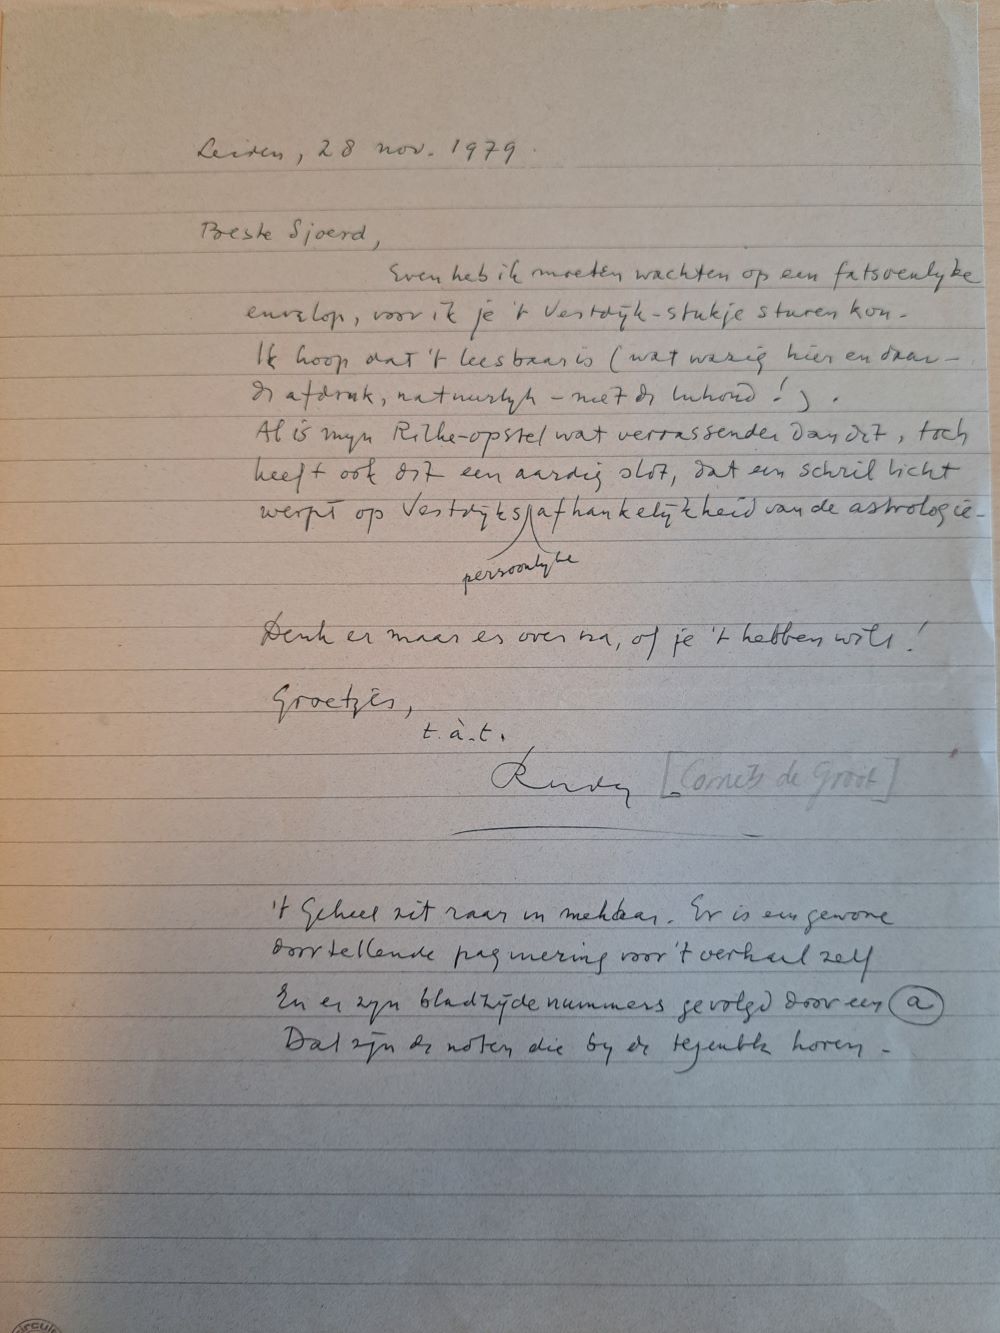 Leiden, 28 nov. 1979.
Beste Sjoerd,
Even heb ik moeten wachten op een fatsoenlyke
envelop, voor ik je 't Vestdijk-stukje sturen kon.
Ik hoop dat 't leesbaar is (wat wazig hier en daar -
de afdruk, natuurlyk - niet de inhoud!).
Al is myn Rilke-opstel wat verrassender dan dit, toch
heeft ook dit een aardig slot, dat een schril licht
werpt op Vestdijks afhankelijkheid van de astrologie -
persoonlyke
Denk er maar es over na, of je 't hebben wilt!
Groetjes,
t.à.t.
Rudy [Cornets de Groot]
't Geheel zit raar in mekaar. Er is een gewone
doortellende paginering voor 't verhaal zelf
En er zyn bladzijdenummers gevolgd door een a
Dat zijn de noten die by de tekst horen -
circul